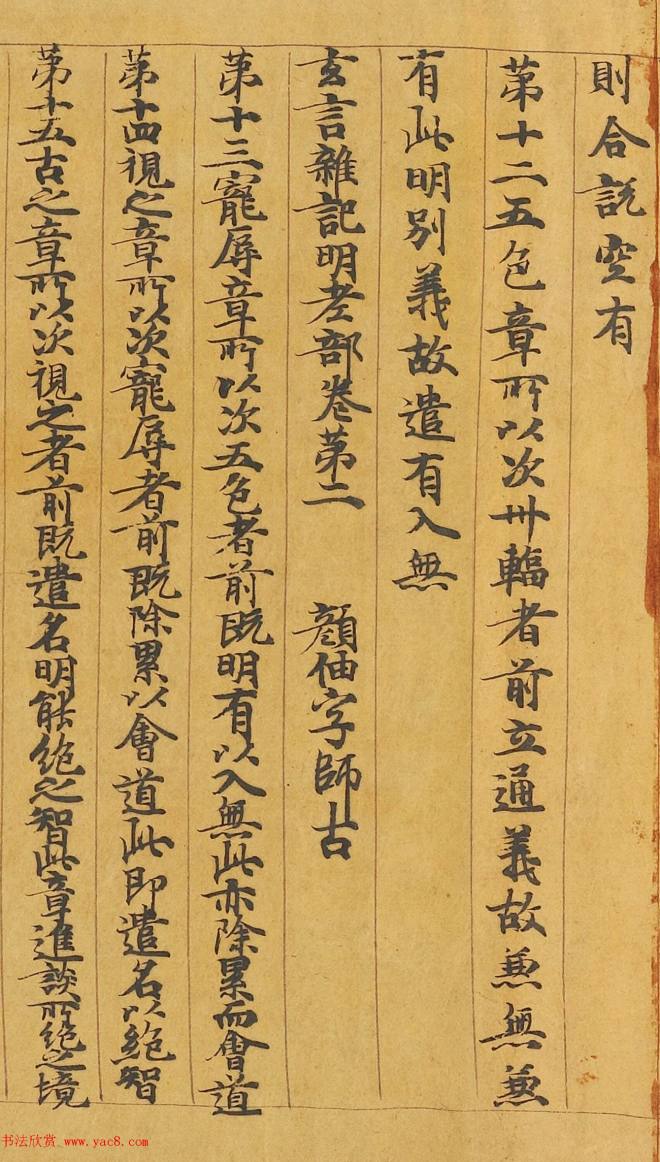 則合説空有
第十二五色章所以次卅輻者前立通義故兼無兼
有此明別義故遣有入無
玄言雜記明老部卷第二 顔伷字師古
第十三寵辱章所以次五色者前既明有以入無此亦除累而會道
第十四視之章所以次寵辱者前既除累以會道此即遣名以絶智
第十五古之章所以次視之者前既遣名明能絶之智此章進談所絶之境
书法欣赏 www.yac8.com